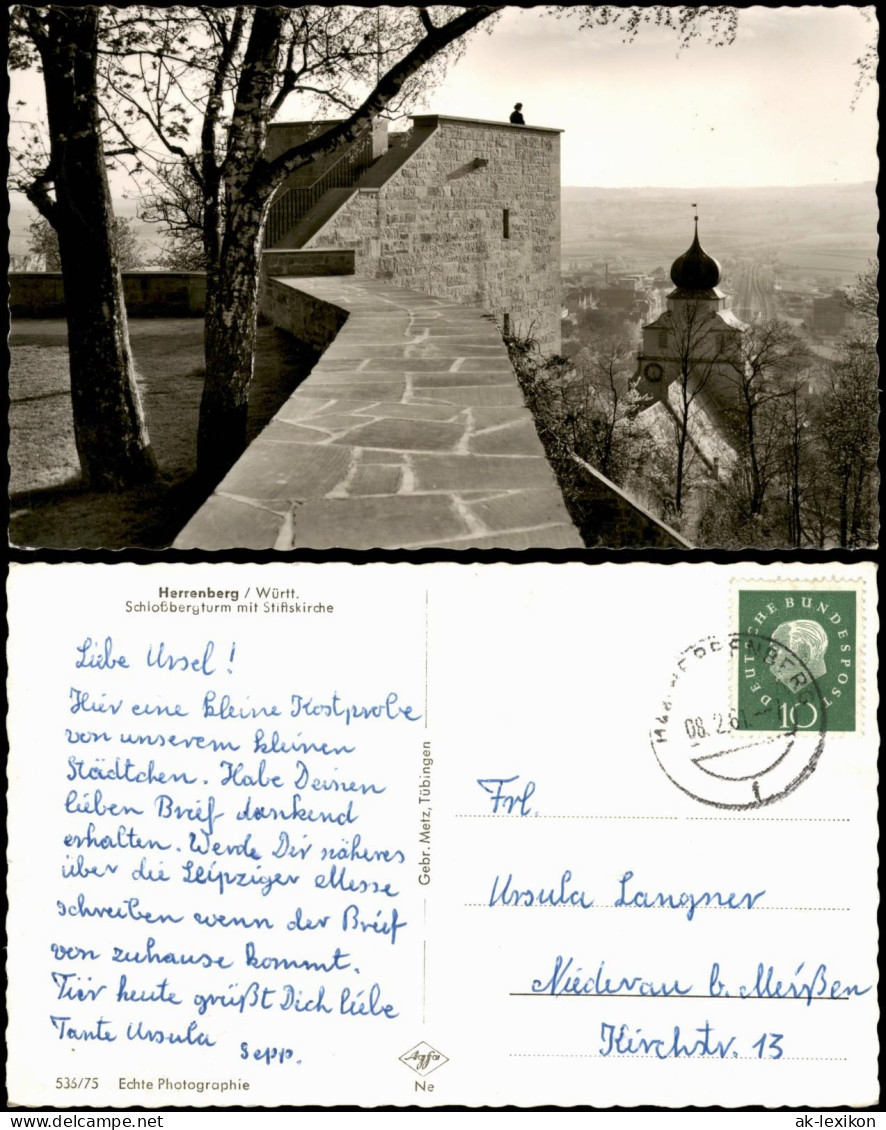 Herrenberg / Württ.
Schloßbergturm mit Stiftskirche
Liebe Ursel!
Hier eine kleine Kostprobe
von unserem kleinen
Städtchen. Habe Deinen
lieben Brief dankend
erhalten. Werde Dir näheres
über die Leipziger Messe
schreiben wenn der Brief
von zuhause kommt.
Für heute grüßt Dich liebe
Tante Ursula
Sepp.
536/75 Echte Photographie
Gebr. Metz, Tübingen
Agfa
Ne
DEUTSCHE BUNDESPOST
10
HERRENBERG
08.2.61.
Frl.
Ursula Langner
Niederau b. Meißen
Kirchstr. 13
ak-lexikon